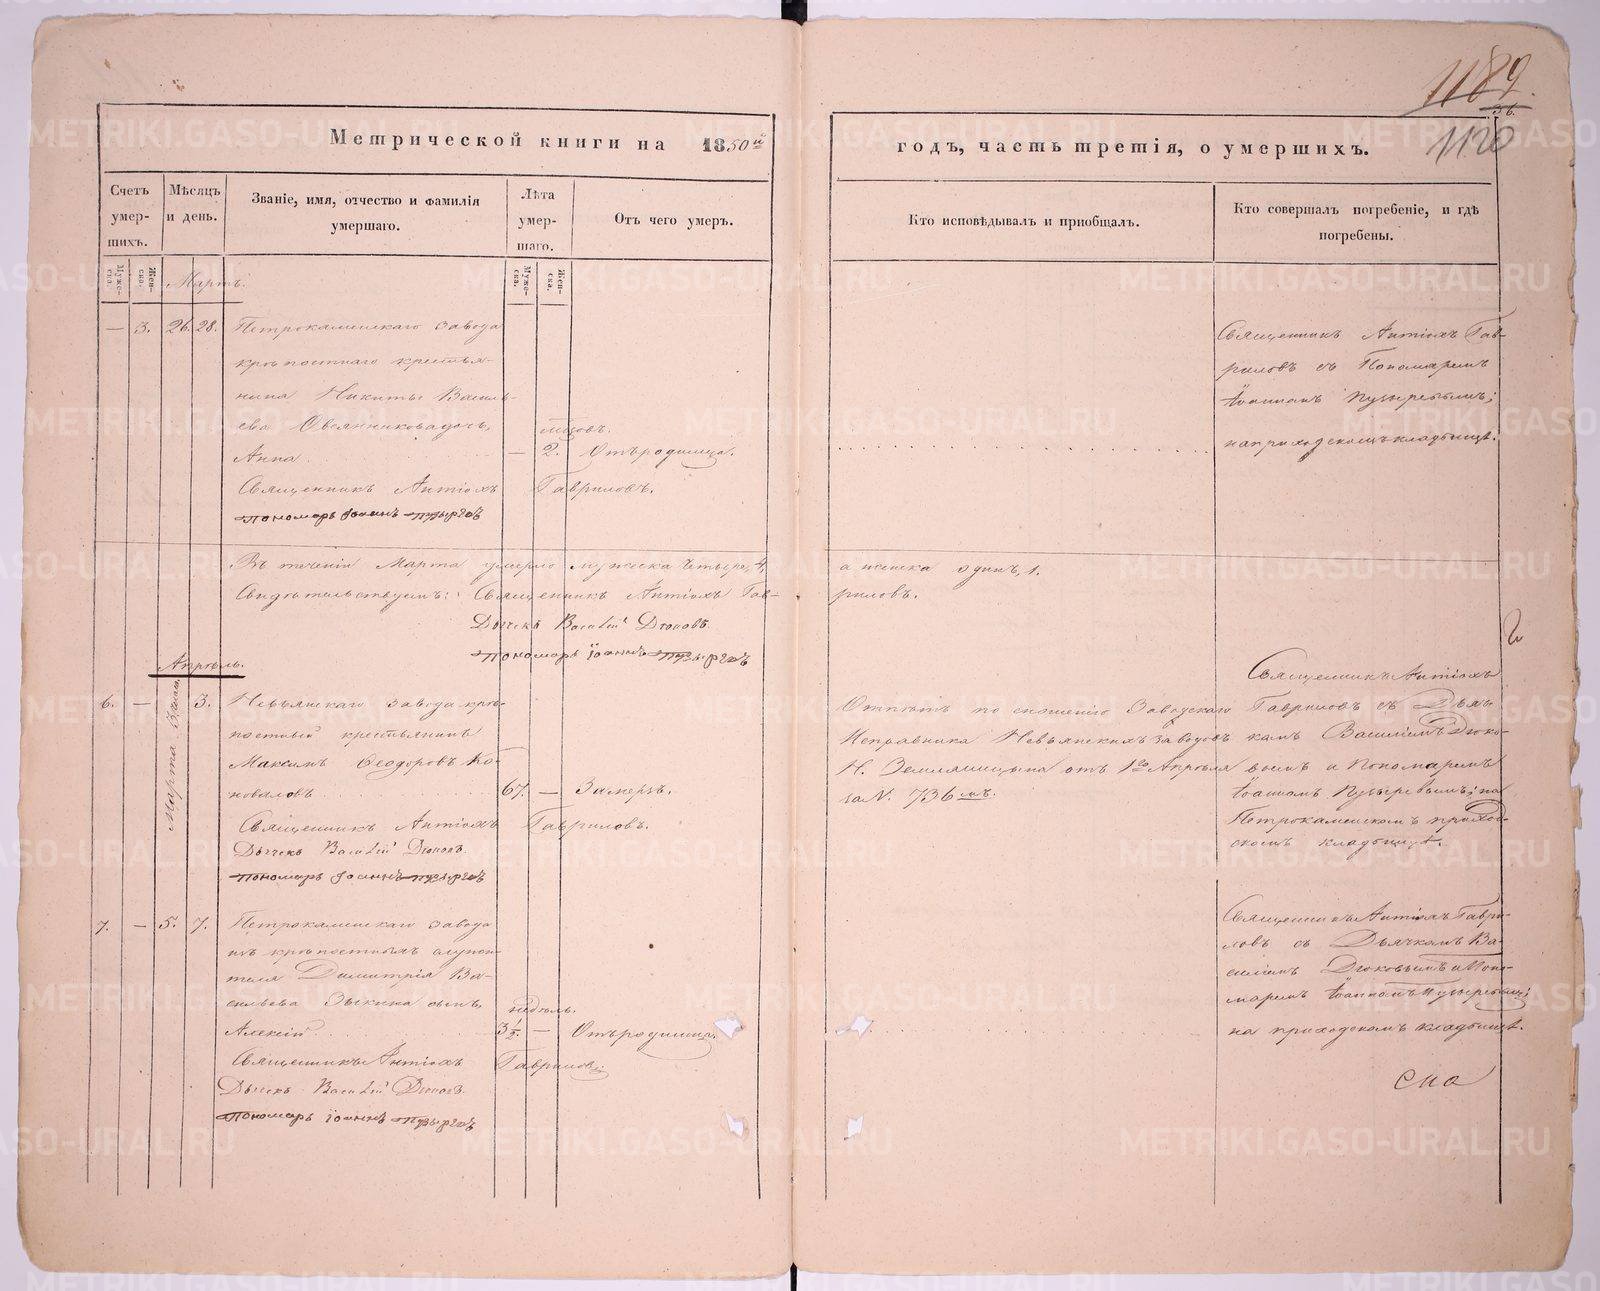 1189.
36.
1120
Метрической книги на 1850й
годъ, часть третія, о умершихъ.
Счетъ умер-
шихъ.
Мѣсяцъ
и день.
Званіе, имя, отчество и фамилія
умершаго.
Лѣта
умер-
шаго.
Отъ чего умеръ.
Кто исповѣдывалъ и пріобщалъ.
Кто совершалъ погребеніе, и гдѣ
погребены.
Муже-
ска.
Жен-
ска.
Муже-
ска.
Жен-
ска.
Мартъ.
— 3. 26. 28. Петрокаменскаго завода
крѣпостнаго крестья-
нина Никиты Василь-
ева Овсянникова дочь,
Анна
мѣсяцовъ.
— 2. Отъ родимца.
Священникъ Антіохъ Гавриловъ.
Пономарь Іоаннъ Пузыревъ
Священникъ Антіохъ Гав-
риловъ съ Пономаремъ
Іоанномъ Пузыревымъ;
на приходскомъ кладбищѣ.
Въ теченіи Марта умерло мужеска четыре, 4,
а женска одинъ, 1.
Свидѣтельствуемъ: Священникъ Антіохъ Гав-
риловъ.
Дьячекъ Василій Дюковъ.
Пономарь Іоаннъ Пузыревъ
Апрѣль.
6. — Марта 3. Невьянскаго завода крѣ-
постный крестьянинъ
Максимъ Ѳеодоровъ Ко-
новаловъ
67. — Замерзъ.
Священникъ Антіохъ Гавриловъ.
Дьячекъ Василій Дюковъ.
Пономарь Іоаннъ Пузыревъ
Отпѣтъ по сношенію Заводскаго
Исправника Невьянскихъ заводовъ
Н. Земляницына отъ 1го Апрѣля
за N. 736мъ.
Священникъ Антіохъ
Гавриловъ съ Дьяч-
комъ Василіемъ Дюко-
вымъ и Пономаремъ
Іоанномъ Пузыревымъ; на
Петрокаменскомъ приход-
скомъ кладбищѣ.
7. — 5. 7. Петрокаменскаго завода
изъ крѣпостныхъ служи-
теля Димитрія Ва-
сильева Зыкина сынъ,
Алексій
недѣль.
3 1/2 — Отъ родимца.
Священникъ Антіохъ Гавриловъ.
Дьячекъ Василій Дюковъ.
Пономарь Іоаннъ Пузыревъ
Священникъ Антіохъ Гаври-
ловъ съ Дьячкомъ Ва-
силіемъ Дюковымъ и Поно-
маремъ Іоанномъ Пузыревымъ;
на приходскомъ кладбищѣ.
METRIKI.GASO-URAL.RU